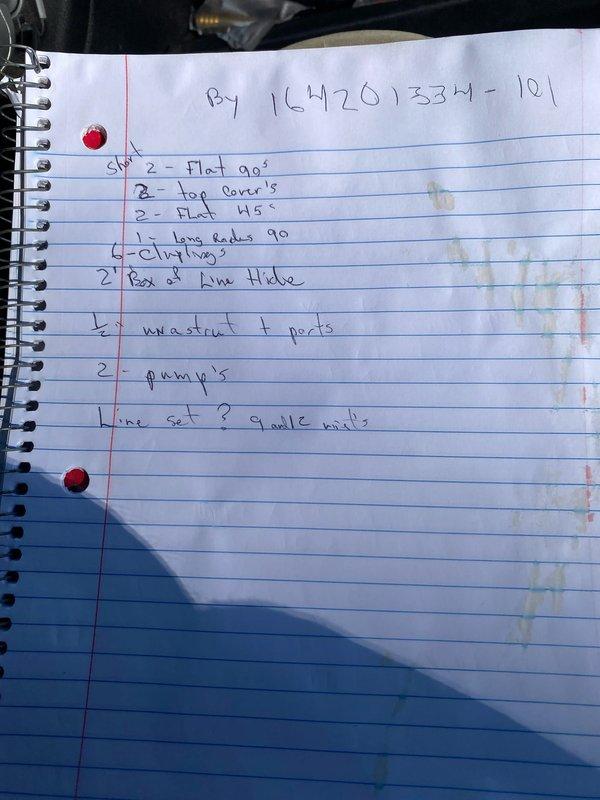 By 164201334-101
Short 2 - Flat 90s
2 - top cover's
2 - Flat 45s
1 - Long Radus 90
6 - Cluplings
2 Box of Line Hide
1/2 - unastrut + parts
2 - pump's
Line set ? 9 and 12 unit's